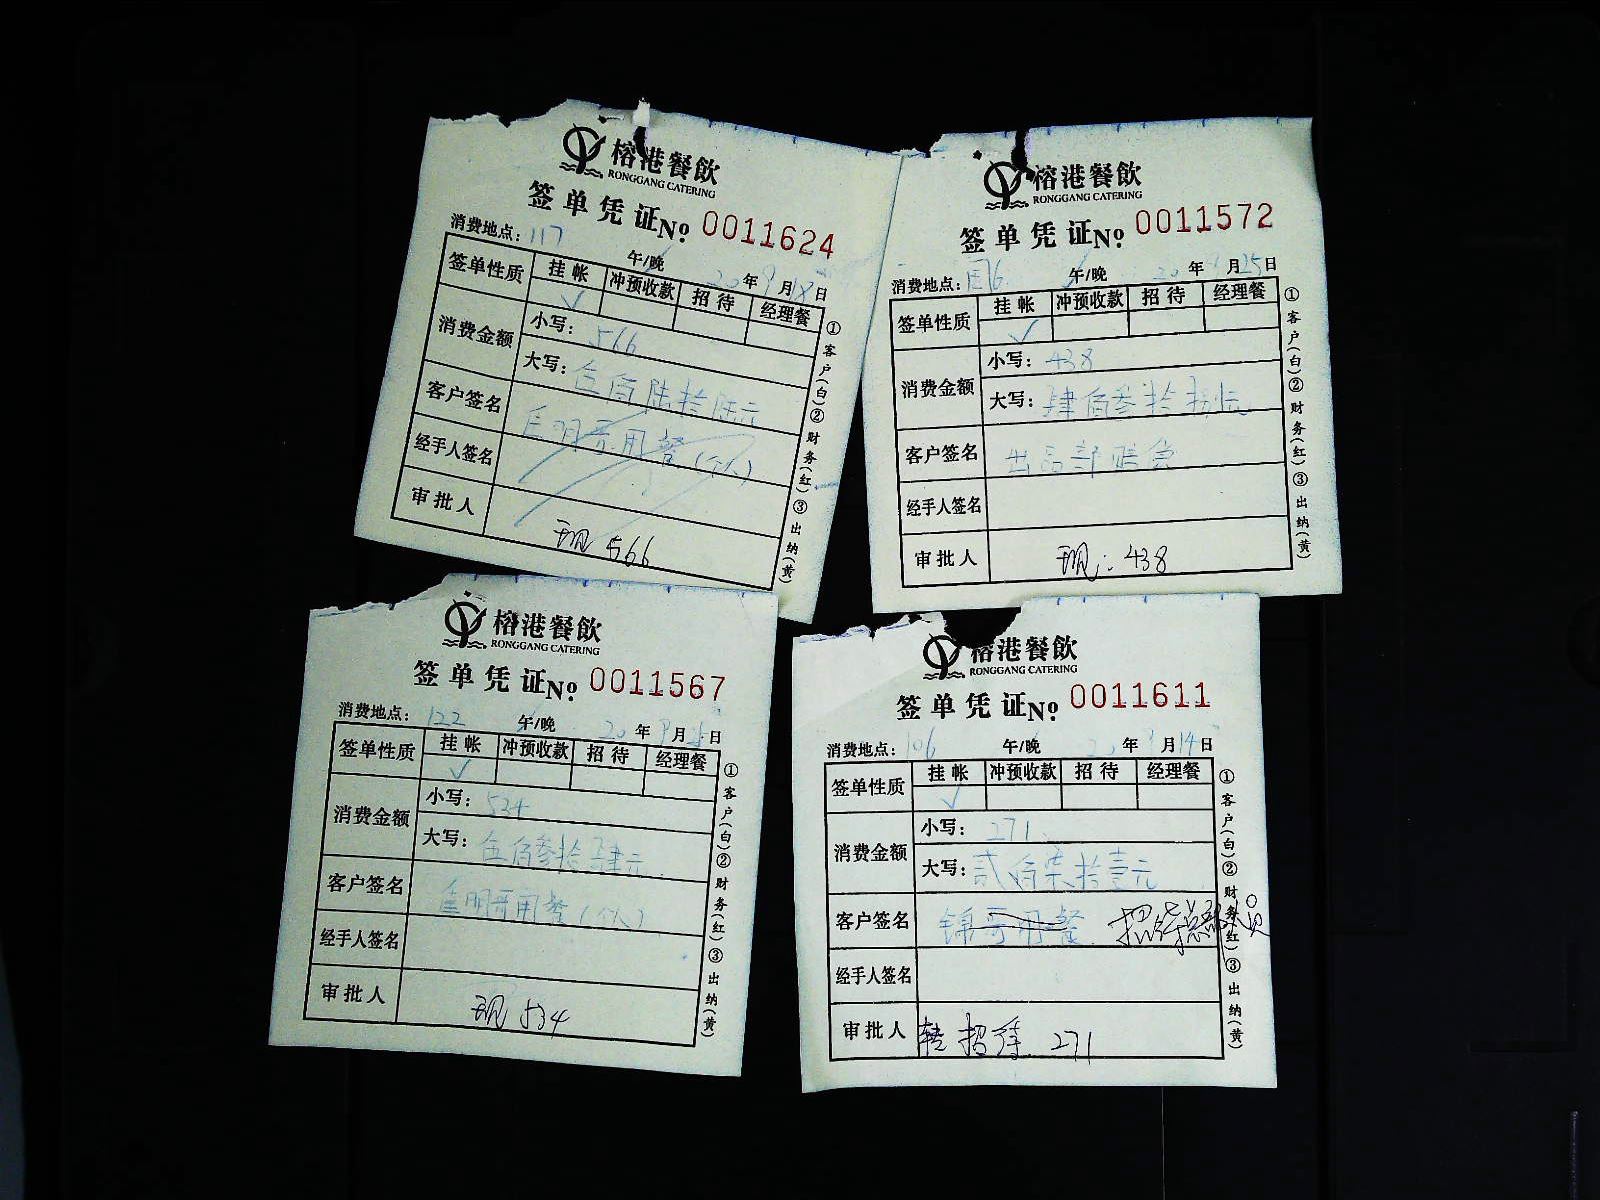 榕港餐飲
RONGGANG CATERING
签单凭证 No 0011624
消费地点: 117 午/晚 20 年 9 月 18 日
签单性质 挂帐 冲预收款 招待 经理餐
✓
消费金额 小写: 566
大写: 伍佰陆拾陆元
客户签名 明哥用餐(个人)
经手人签名
审批人 现 566
①客户(白)②财务(红)③出纳(黄)
榕港餐飲
RONGGANG CATERING
签单凭证 No 0011572
消费地点: 6 午/晚 20 年 月 25 日
签单性质 挂帐 冲预收款 招待 经理餐
✓
消费金额 小写: 438
大写: 肆佰叁拾捌元
客户签名 出品部
经手人签名
审批人 现: 438
①客户(白)②财务(红)③出纳(黄)
榕港餐飲
RONGGANG CATERING
签单凭证 No 0011567
消费地点: 122 午/晚 20 年 9 月 日
签单性质 挂帐 冲预收款 招待 经理餐
✓
消费金额 小写: 534
大写: 伍佰叁拾肆元
客户签名 明哥用餐(个人)
经手人签名
审批人 现 534
①客户(白)②财务(红)③出纳(黄)
榕港餐飲
RONGGANG CATERING
签单凭证 No 0011611
消费地点: 106 午/晚 20 年 月 14 日
签单性质 挂帐 冲预收款 招待 经理餐
✓
消费金额 小写: 271
大写: 贰佰柒拾壹元
客户签名 锦哥用餐 招待
经手人签名
审批人 转招待 271
①客户(白)②财务(红)③出纳(黄)